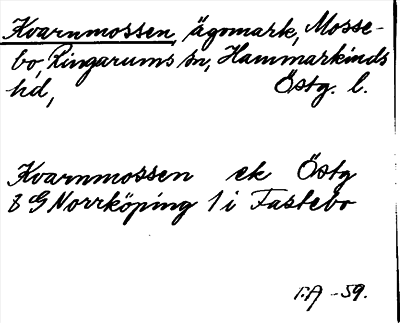 Kvarnmossen, ägomark, Mosse-
bo, Ringarums sn, Hammarkinds
hd, Östg. l.
Kvarnmossen ek Östg
8 G Norrköping 1 i Fastebo
I.A -59.